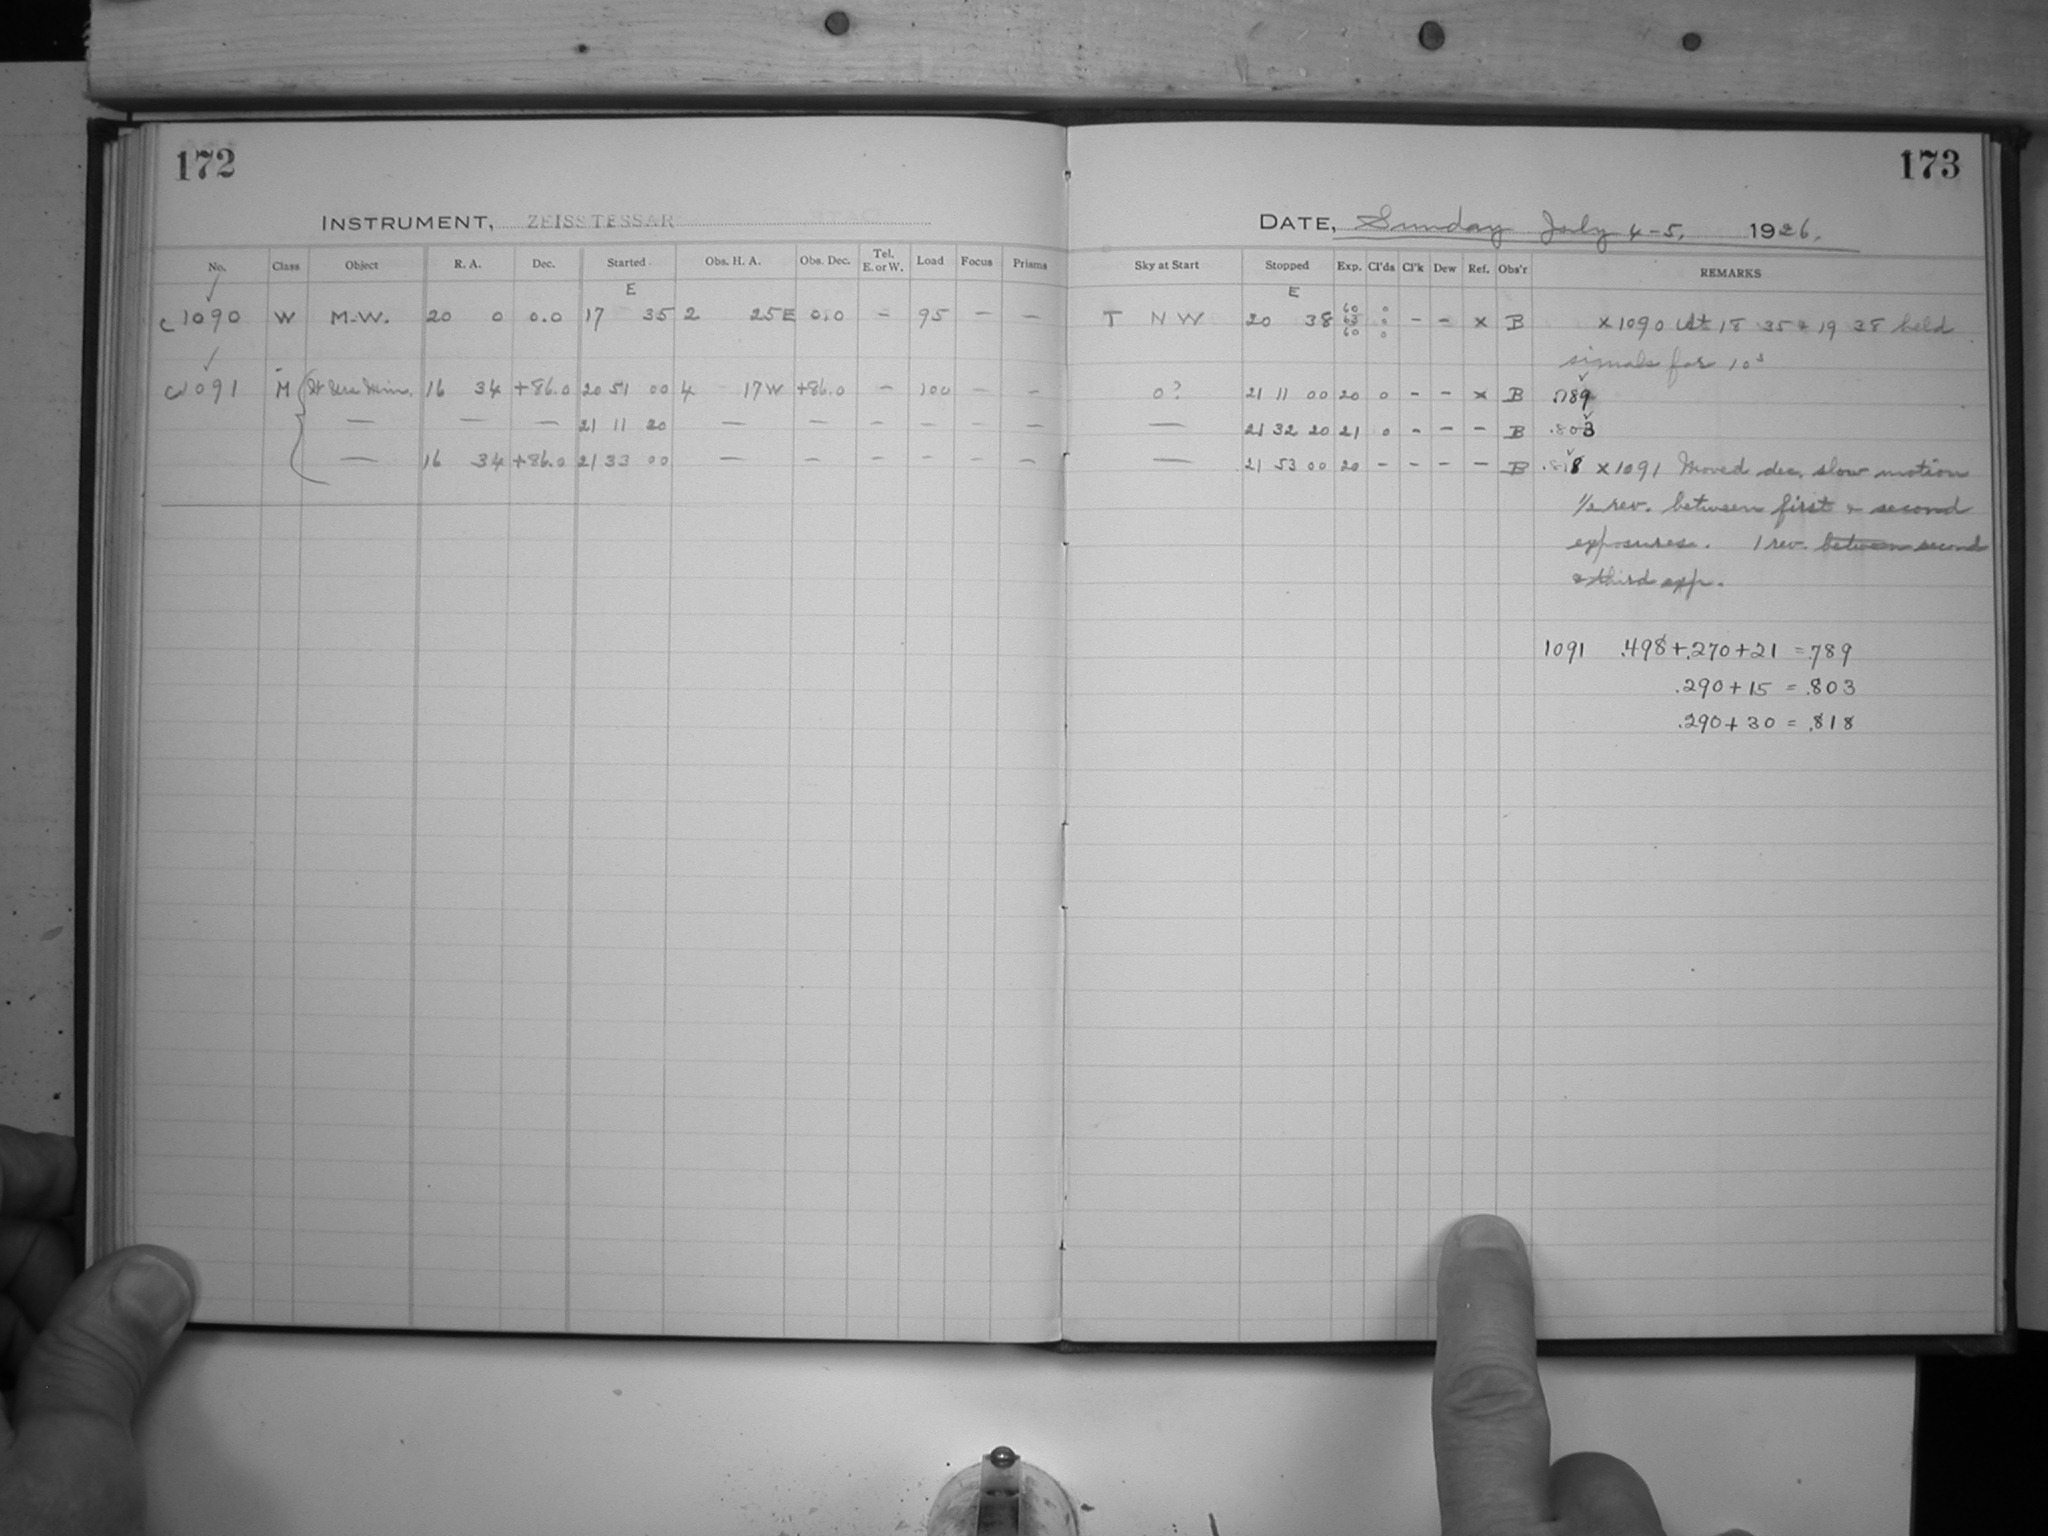 172
INSTRUMENT, ZEISS TESSAR
No. Class Object R. A. Dec. Started Obs. H. A. Obs. Dec. Tel. E. or W. Load Focus Prisms
E
c1090 W M-W. 20 0 0.0 17 35 2 25E 0.0 - 95 - -
c1091 M 16 34 +86.0 20 51 00 4 17W +86.0 - 100 - -
— — — 21 11 20 — — - - - -
— 16 34 +86.0 21 33 00 — — - - - -
173
DATE, Sunday July 4-5, 1926.
Sky at Start Stopped Exp. Cl'ds Cl'k Dew Ref. Obs'r REMARKS
E
T N W 20 38 60 63 60 0 0 0 - - x B x 1090 At 18 35 & 19 38 held
signals for 10s
0? 21 11 00 20 0 - - x B .789
— 21 32 20 21 0 - - - B .803
— 21 53 00 20 - - - - B .818 x 1091 Moved dec. slow motion
1/2 rev. between first & second
exposures. 1 rev. between second
& third exp.
1091 .498+.270+21 = 789
.290+15 = .803
.290+30 = .818